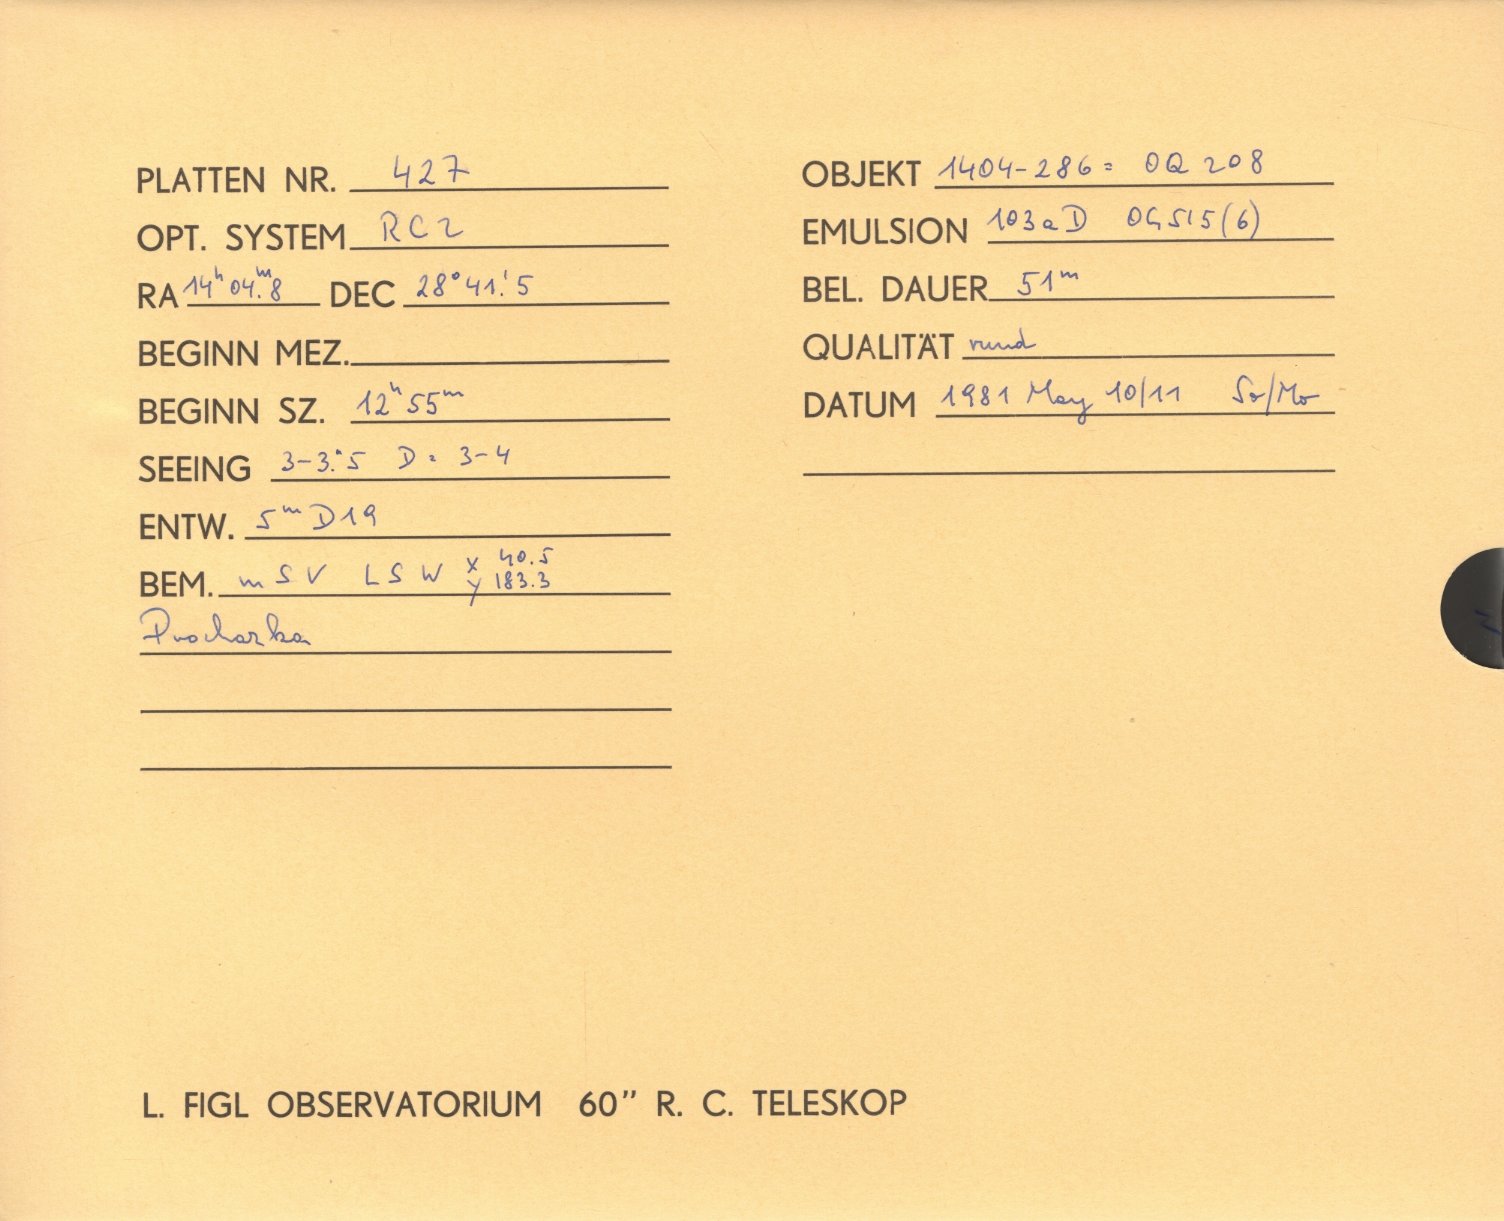 PLATTEN NR. 427
OPT. SYSTEM RC2
RA 14ʰ04ᵐ.8 DEC 28°41'.5
BEGINN MEZ.
BEGINN SZ. 12ʰ55ᵐ
SEEING 3-3."5 D = 3-4
ENTW. 5ᵐ D19
BEM. mSV LSW x 40.5
y 183.3
Prochazka
OBJEKT 1404-286 = OQ 208
EMULSION 103aD OG515(6)
BEL. DAUER 51ᵐ
QUALITÄT rund
DATUM 1981 May 10/11 So/Mo
L. FIGL OBSERVATORIUM 60" R. C. TELESKOP